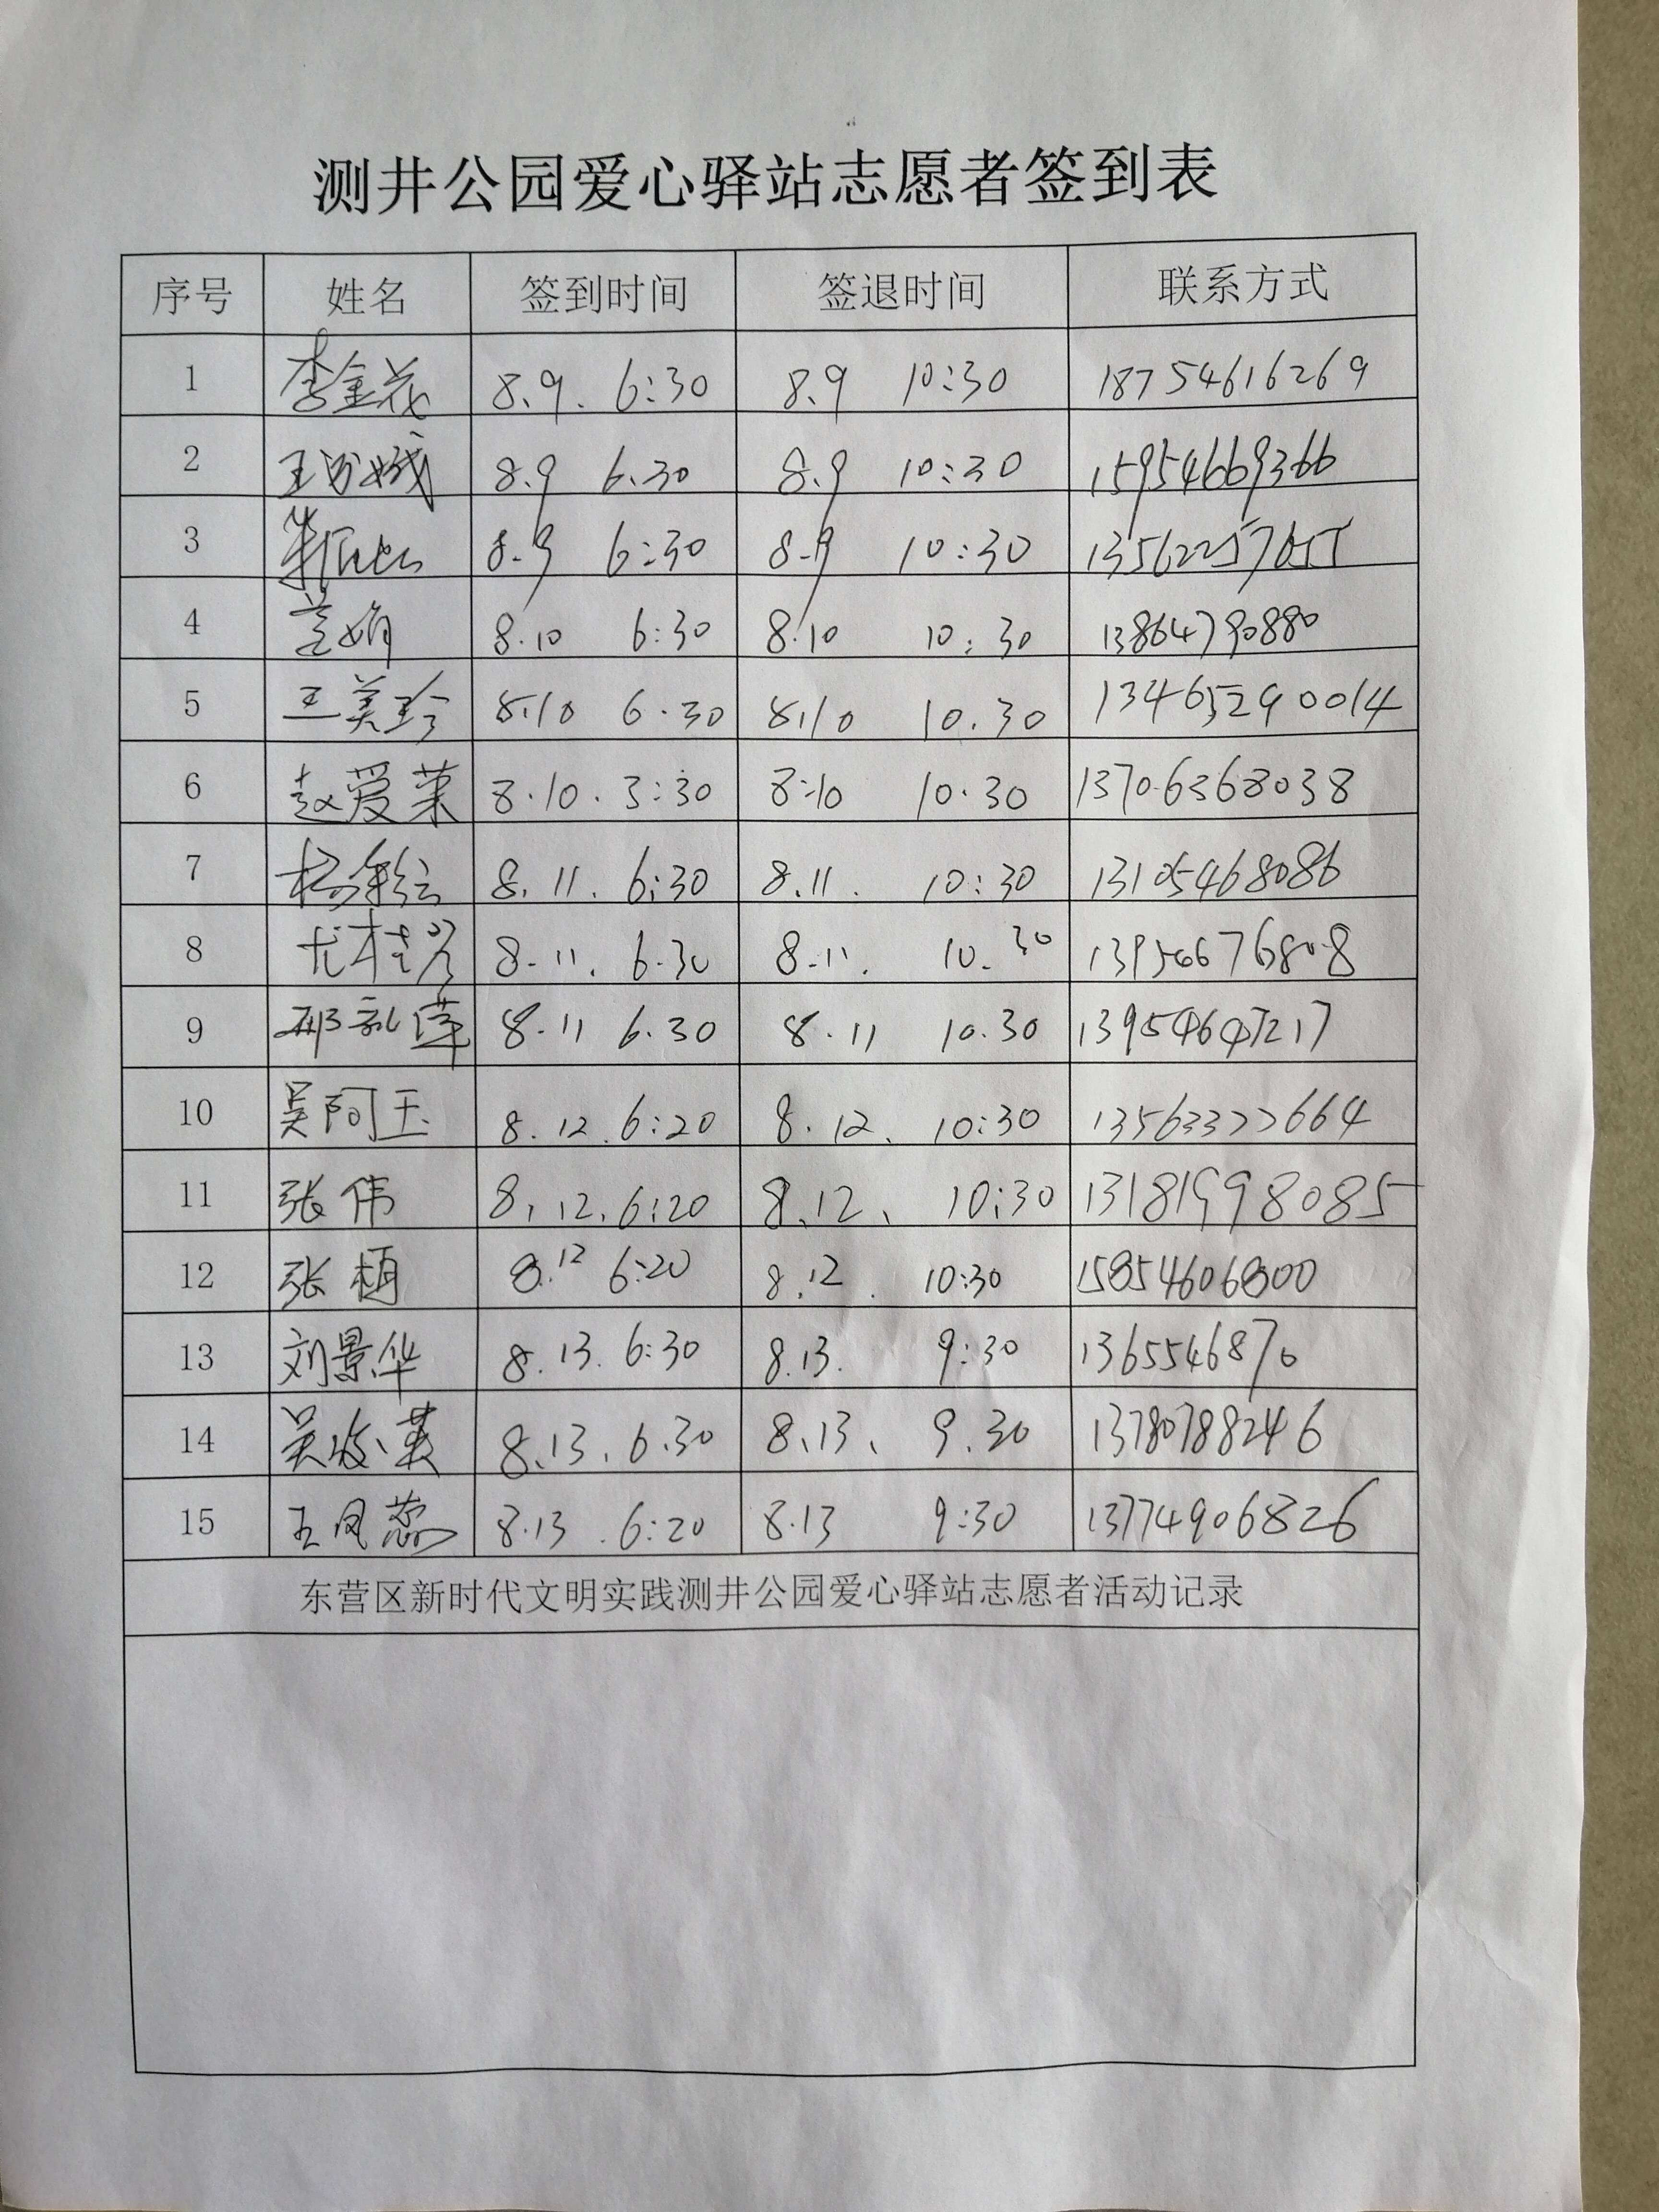 测井公园爱心驿站志愿者签到表
序号 姓名 签到时间 签退时间 联系方式
1 李金花 8.9. 6:30 8.9 10:30 18754616269
2 8.9 6.30 8.9 10:30 15954669366
3 8.9 6:30 8.9 10:30 13562257055
4 8.10 6:30 8.10 10:30 13864790880
5 王美玲 8.10 6.30 8.10 10.30 13465290014
6 赵爱莱 8.10.3:30 8:10 10.30 13706368038
7 8.11. 6:30 8.11. 10:30 13105468086
8 8.11. 6.30 8.11. 10.30
9 8.11 6.30 8.11 10.30 13954647217
10 吴阿玉 8.12.6:20 8.12. 10:30 13563322664
11 张伟 8.12.6:20 8.12. 10:30 13181998085
12 张植 8.12 6:20 8.12. 10:30 15854606800
13 刘景华 8.13.6:30 8.13. 9:30 1365546870
14 8.13.6.30 8.13. 9.30 13780788246
15 王凤蕊 8.13.6:20 8.13 9:30 13774906826
东营区新时代文明实践测井公园爱心驿站志愿者活动记录